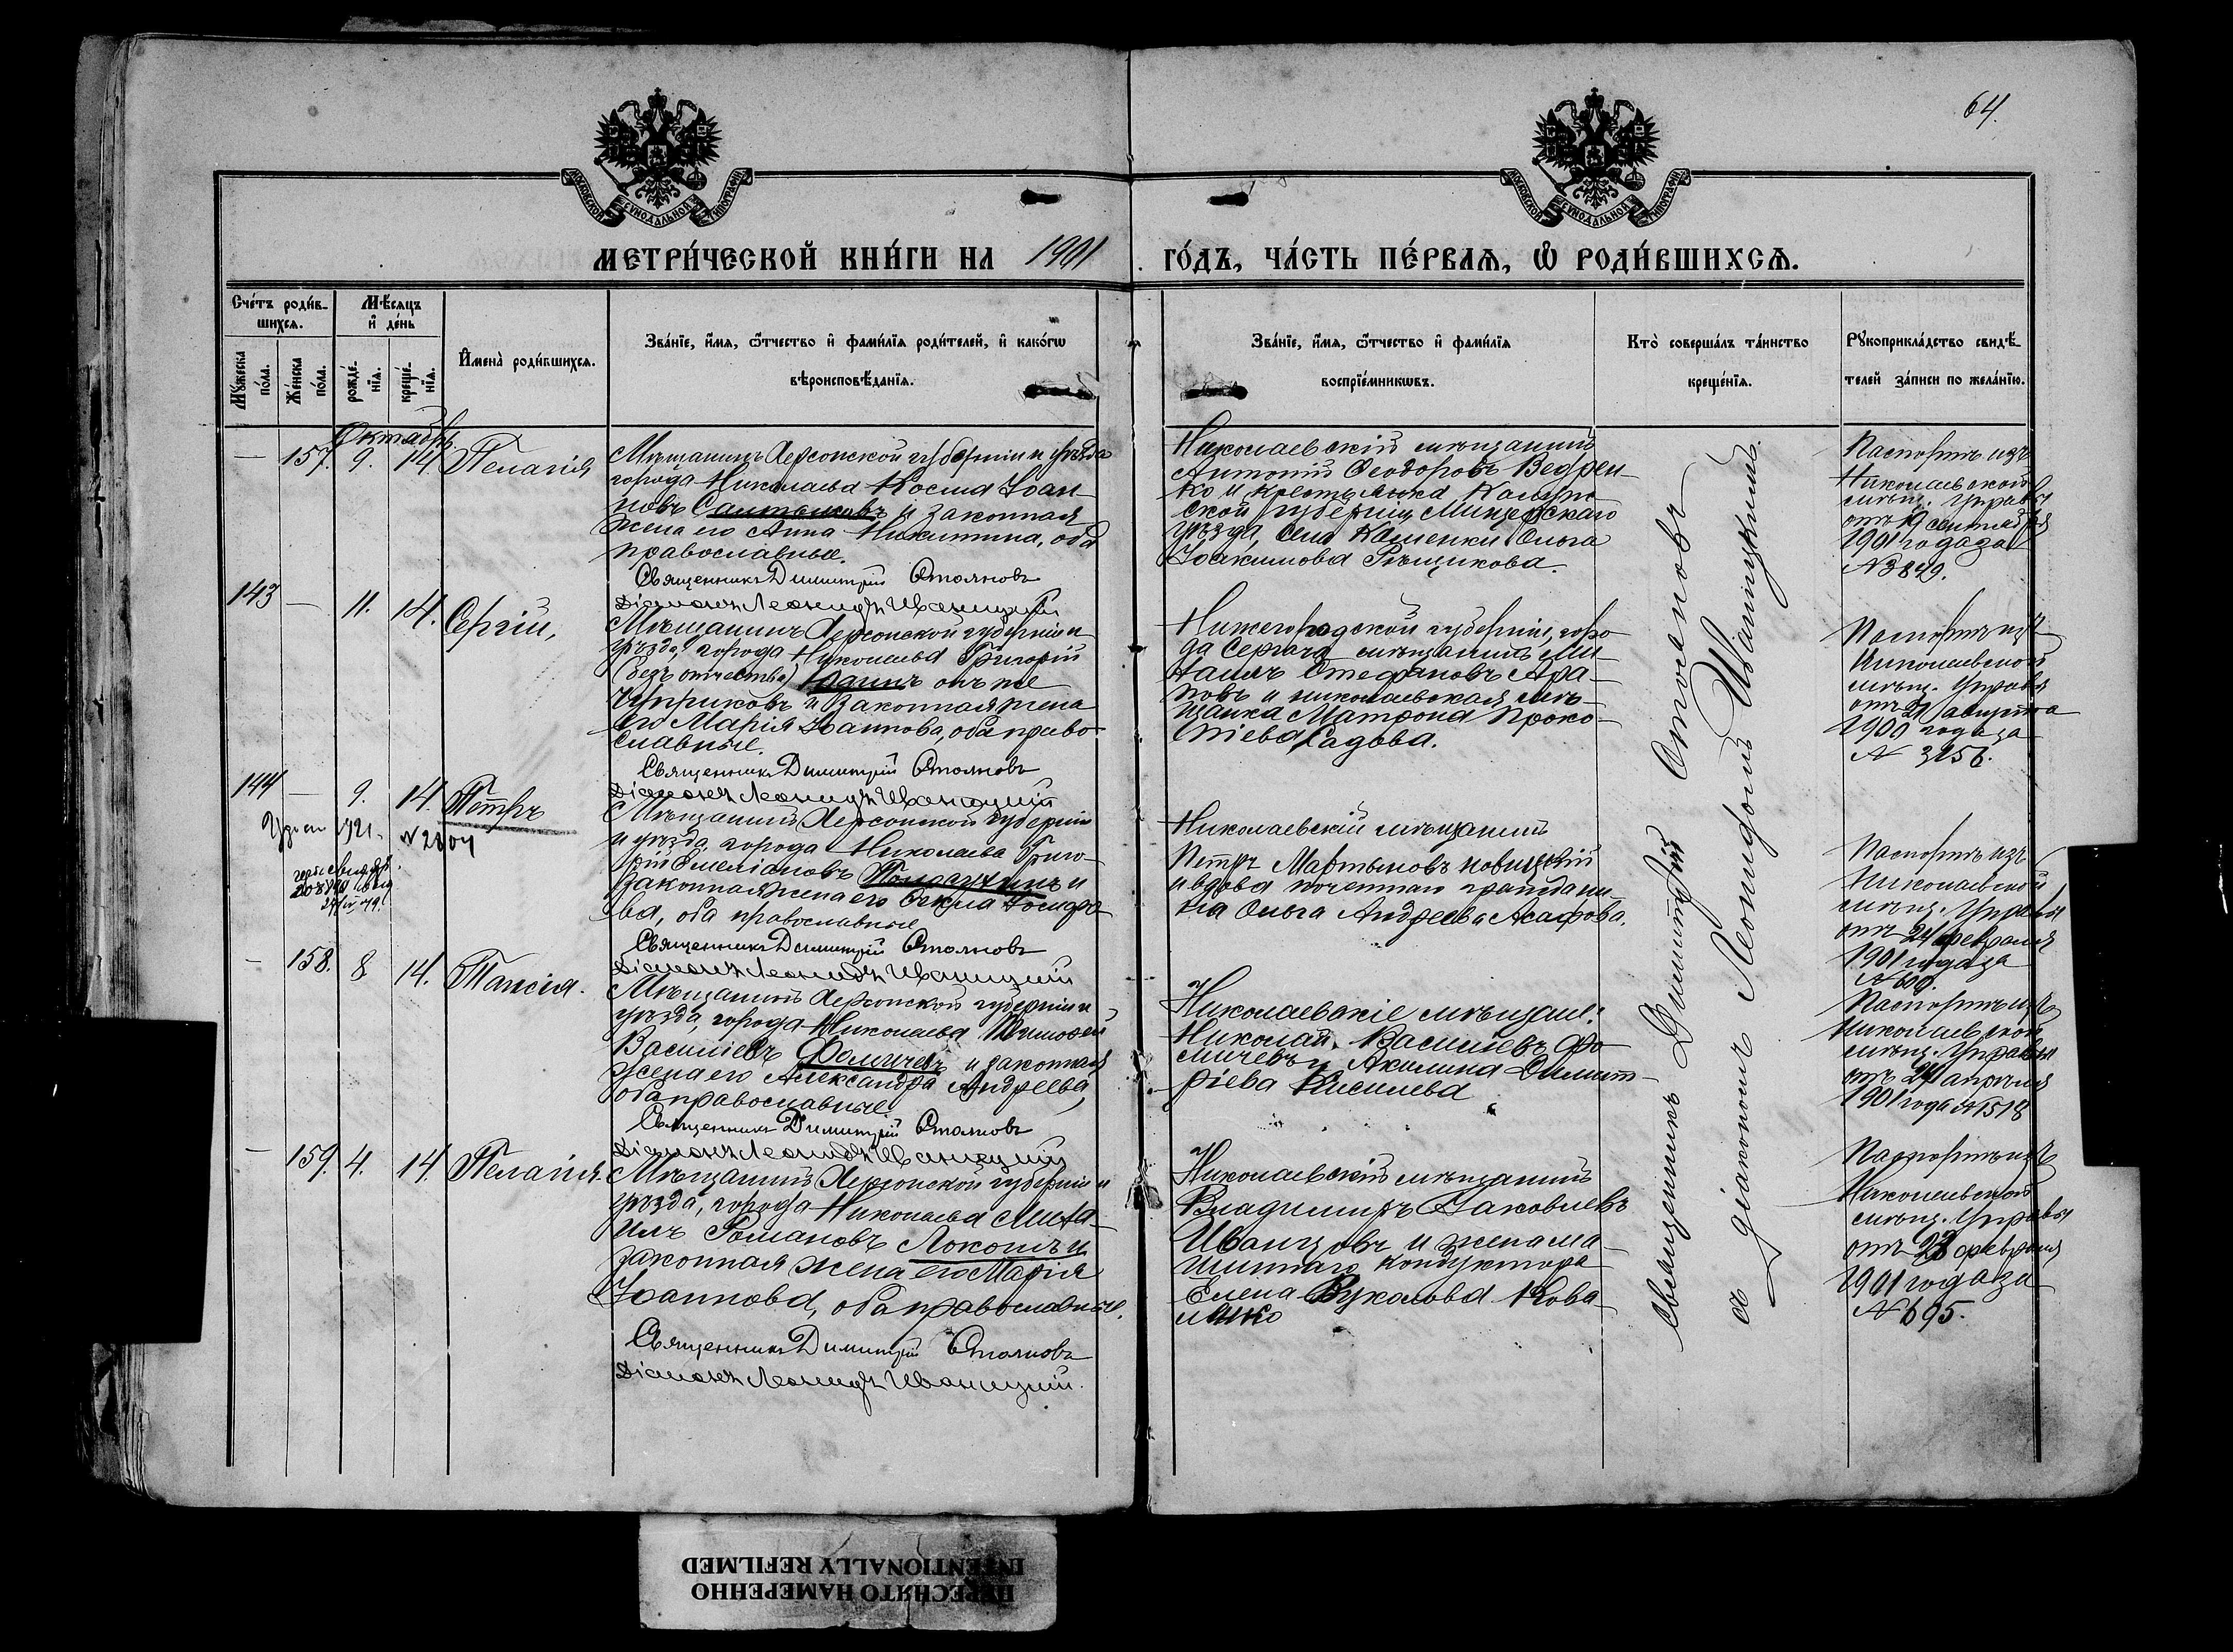 64.
МОСКОВСКОЙ СУНОДАЛЬНОЙ ТИПОГРАФІИ
МОСКОВСКОЙ СУНОДАЛЬНОЙ ТИПОГРАФІИ
МЕТРИ́ЧЕСКОЙ КНИ́ГИ НА 1901 ГО́ДЪ, ЧА́СТЬ ПЕ́РВАѦ, Ѡ РОДИ́ВШИХСѦ.
Сче́тъ роди́в-
шихсѧ.
Мѣ́сѧцъ
и҆ де́нь
Мꙋ́жеска
по́ла.
Же́нска
по́ла.
рожде́-
нїѧ.
креще́-
нїѧ.
И҆мена̀ роди́вшихсѧ.
Зва́нїе, и҆́мѧ, ѻ҆́тчество и҆ фами́лїѧ роди́телей, и҆ како́гѡ
вѣроисповѣ́данїѧ.
Зва́нїе, и҆́мѧ, ѻ҆́тчество и҆ фами́лїѧ
воспрїе́мникѡвъ.
Кто̀ соверша́лъ та́инство
креще́нїѧ.
Рꙋкоприкла́дство свидѣ́-
телей за́писи по жела́нїю.
Октябрь.
— 157. 9. 14. Пелагія
Мѣщанинъ Херсонской губерніи и уѣзда
города Николаева Косма Іоан-
новъ и законная
жена его Анна Никитина, оба
православные.
Священникъ Димитрій Стояновъ
Діаконъ Леонидъ Иваницкій
Николаевскій мѣщанинъ
Антоній Ѳеодоровъ Ведрен-
ко и крестьянка Калуж-
ской губерніи
уѣзда, села Каменки Ольга
Іоакимова
Паспортъ изъ
Николаевской
мѣщ. Управы
отъ 19 сентября
1901 года за
№ 3849.
143 — 11. 14. Сергій,
Мѣщанинъ Херсонской губерніи и
уѣзда, города Николаева Григорій
(безъ отчества) онъ же
Чуприковъ и законная жена
его Марія Іоаннова, оба право-
славные.
Священникъ Димитрій Стояновъ
Діаконъ Леонидъ Иваницкій
Нижегородской губерніи, горо-
да Сергача мѣщанинъ Ми-
хаилъ Стефановъ Ара-
повъ и николаевская мѣ-
щанка Матрона Проко-
піева Садова.
Паспортъ изъ
Николаевской
мѣщ. Управы
отъ 21 августа
1900 года за
№ 3156.
144 — 9. 14. Петръ
1921. № 2804
Мѣщанинъ Херсонской губерніи
и уѣзда, города Николаева Григо-
рій Емеліановъ и
законная жена его Ѳекла
ва, оба православные
Священникъ Димитрій Стояновъ
Діаконъ Леонидъ Иваницкій
Николаевскій мѣщанинъ
Петръ Мартыновъ Новицкій
и вдова почетнаго граждани-
на Ольга Андреева Асафова.
Паспортъ изъ
Николаевской
мѣщ. Управы
отъ 24 февраля
1901 года за
№ 609.
— 158. 8 14. Таисія.
Мѣщанинъ Херсонской губерніи и
уѣзда, города Николаева Тимоѳей
Василіевъ Фомичевъ и законная
жена его Александра Андреева,
оба православные
Священникъ Димитрій Стояновъ
Діаконъ Леонидъ Иваницкій
Николаевскіе мѣщане:
Николай Василіевъ Фо-
мичевъ и Акилина Димит-
ріева Киселева
Паспортъ изъ
Николаевской
мѣщ. Управы
отъ 24 апрѣля
1901 года № 1518
— 159. 4. 14. Пелагія.
Мѣщанинъ Херсонской губерніи и
уѣзда, города Николаева Миха-
илъ Романовъ Локоть и
законная жена его Марія
Іоаннова, оба православные.
Священникъ Димитрій Стояновъ
Діаконъ Леонидъ Иваницкій.
Николаевскій мѣщанинъ
Владимиръ Іаковлевъ
Иванцовъ и жена ма-
шиннаго кондуктора
Елена Вуколова Кова-
ленко
Паспортъ изъ
Николаевской
мѣщ. Управы
отъ 28 февраля
1901 года за
№ 695.
Священникъ Димитрій Стояновъ
съ діакономъ Леонидомъ Иваницкимъ.
ПЕРЕСНЯТО НАМЕРЕННО
INTENTIONALLY REFILMED